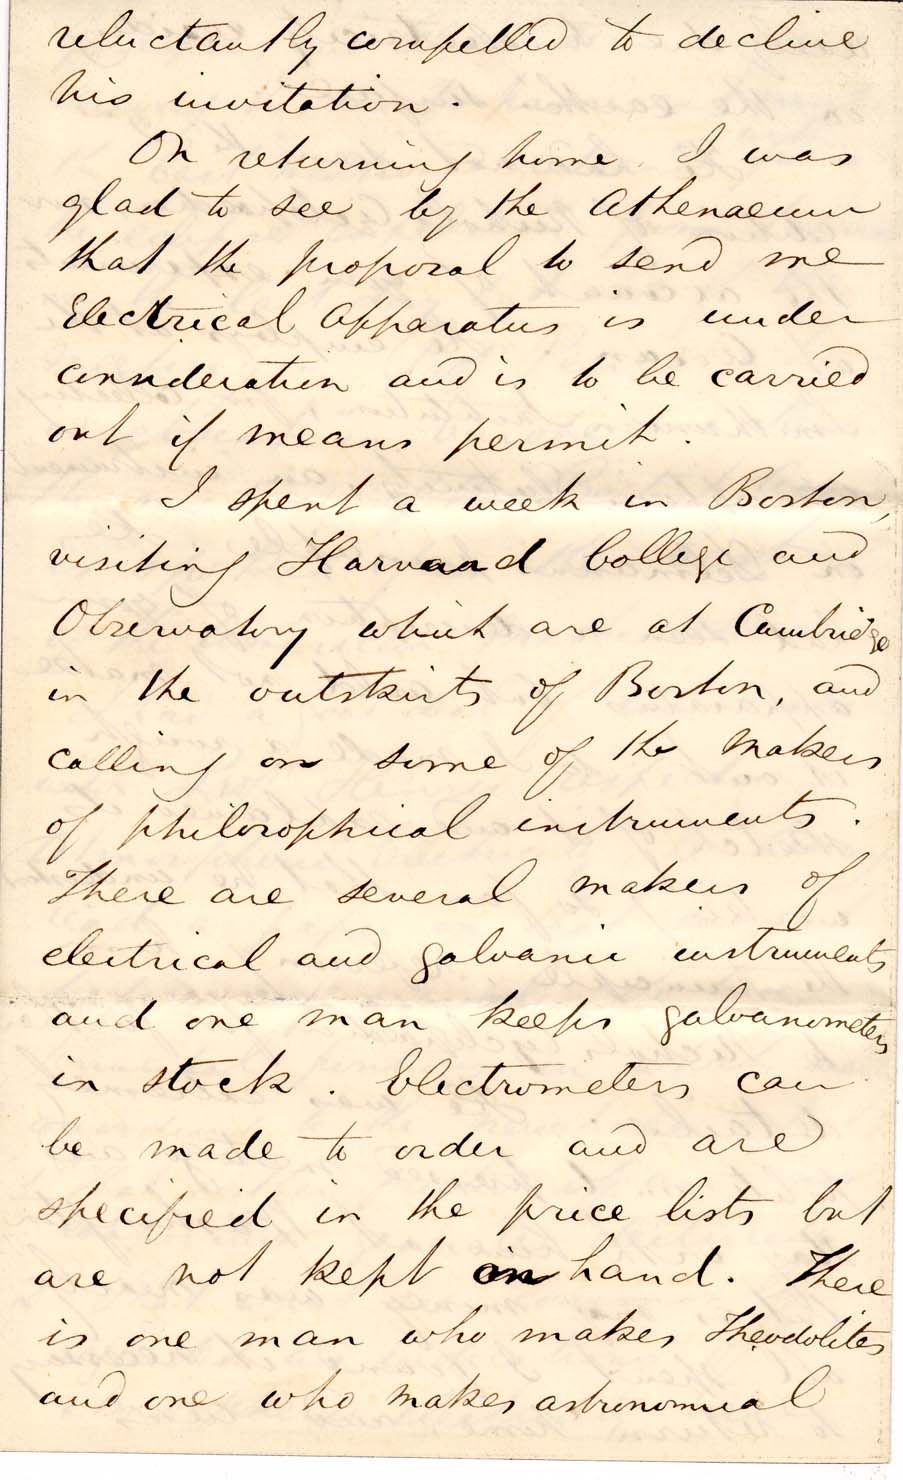 reluctantly compelled to decline
his invitation.
On returning home I was
glad to see by the Athenaeum
that the proposal to send me
Electrical Apparatus is under
consideration and is to be carried
out if means permit.
I spent a week in Boston,
visiting Harvard College and
Observatory which are at Cambridge
in the outskirts of Boston, and
calling on some of the makers
of philosophical instruments.
There are several makers of
electrical and galvanic instruments
and one man keeps galvanometers
in stock. Electrometers can
be made to order and are
specified in the price lists but
are not kept on hand. There
is one man who makes Theodolites
and one who makes astronomical